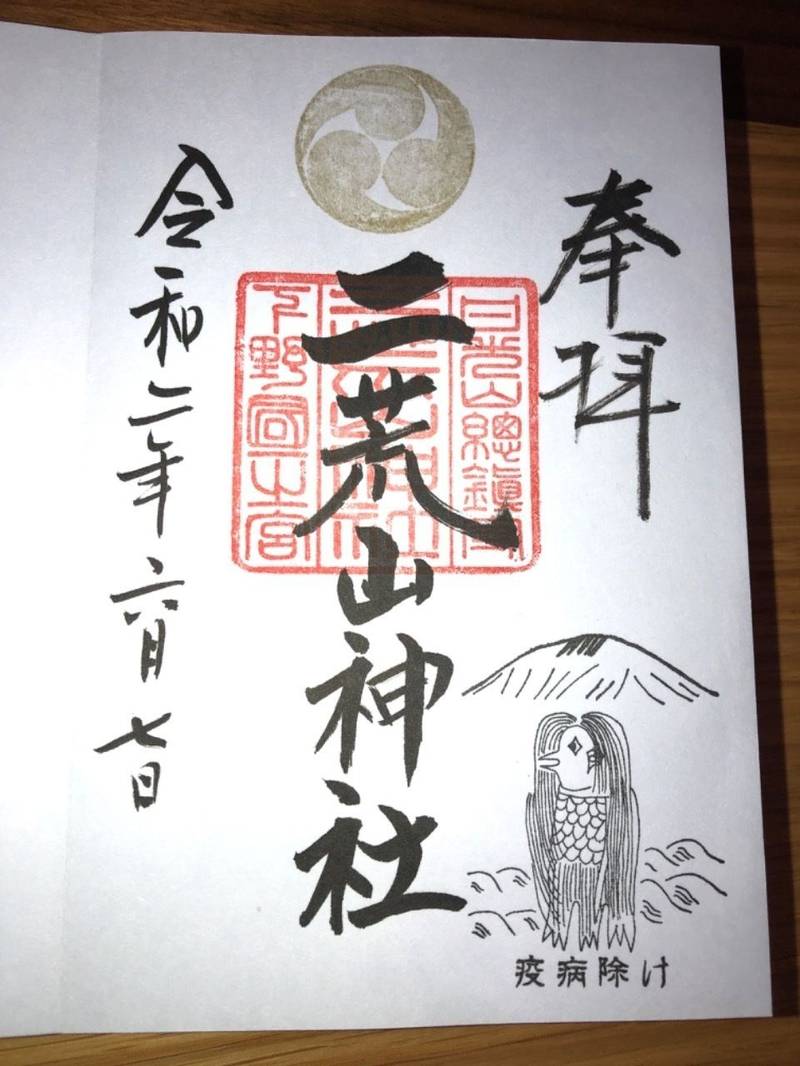 奉拝
日光山總鎮守
二荒山神社
下野國一之宮
令和二年六月七日
疫病除け